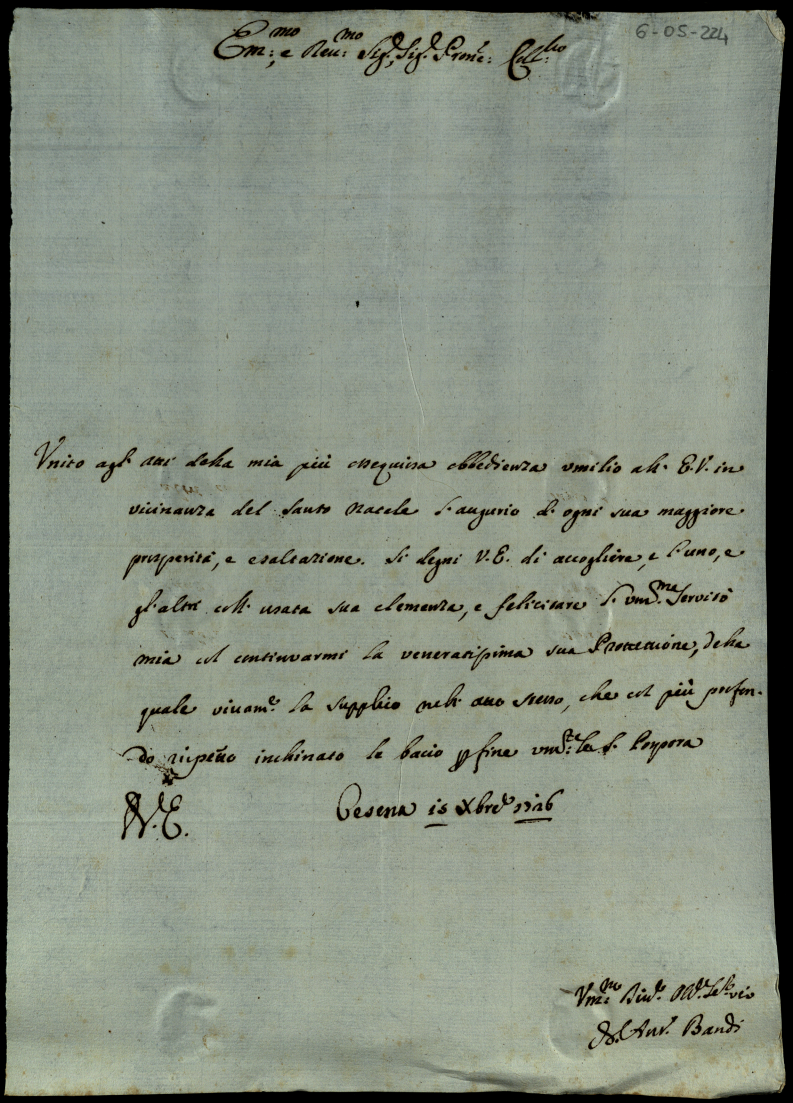 6-05-224
Em:mo e Reu:mo Sig.r, Sig.r Prone: Coll:mo
Vnito agl' atti della mia più ossequiosa obbedienza vmilio all' E.V. in
vicinanza del Santo Natale l'augurio d' ogni sua maggiore
prosperità, e esaltazione. Si degni V.E. di accogliere, e l'uno, e
gl'altri coll' usata sua clemenza, e felicitare l' vm.ma Servitù
mia col continuarmi la veneratissima sua Protettione, della
quale viuam.e la supplico nell' atto stesso, che col più profon-
do rispetto inchinato le bacio p fine vm:te la S. Porpora
D.V.E. Cesena 15 Xbre 1726
Vm:mo Diu.o Obb.
Ant.o Bandi